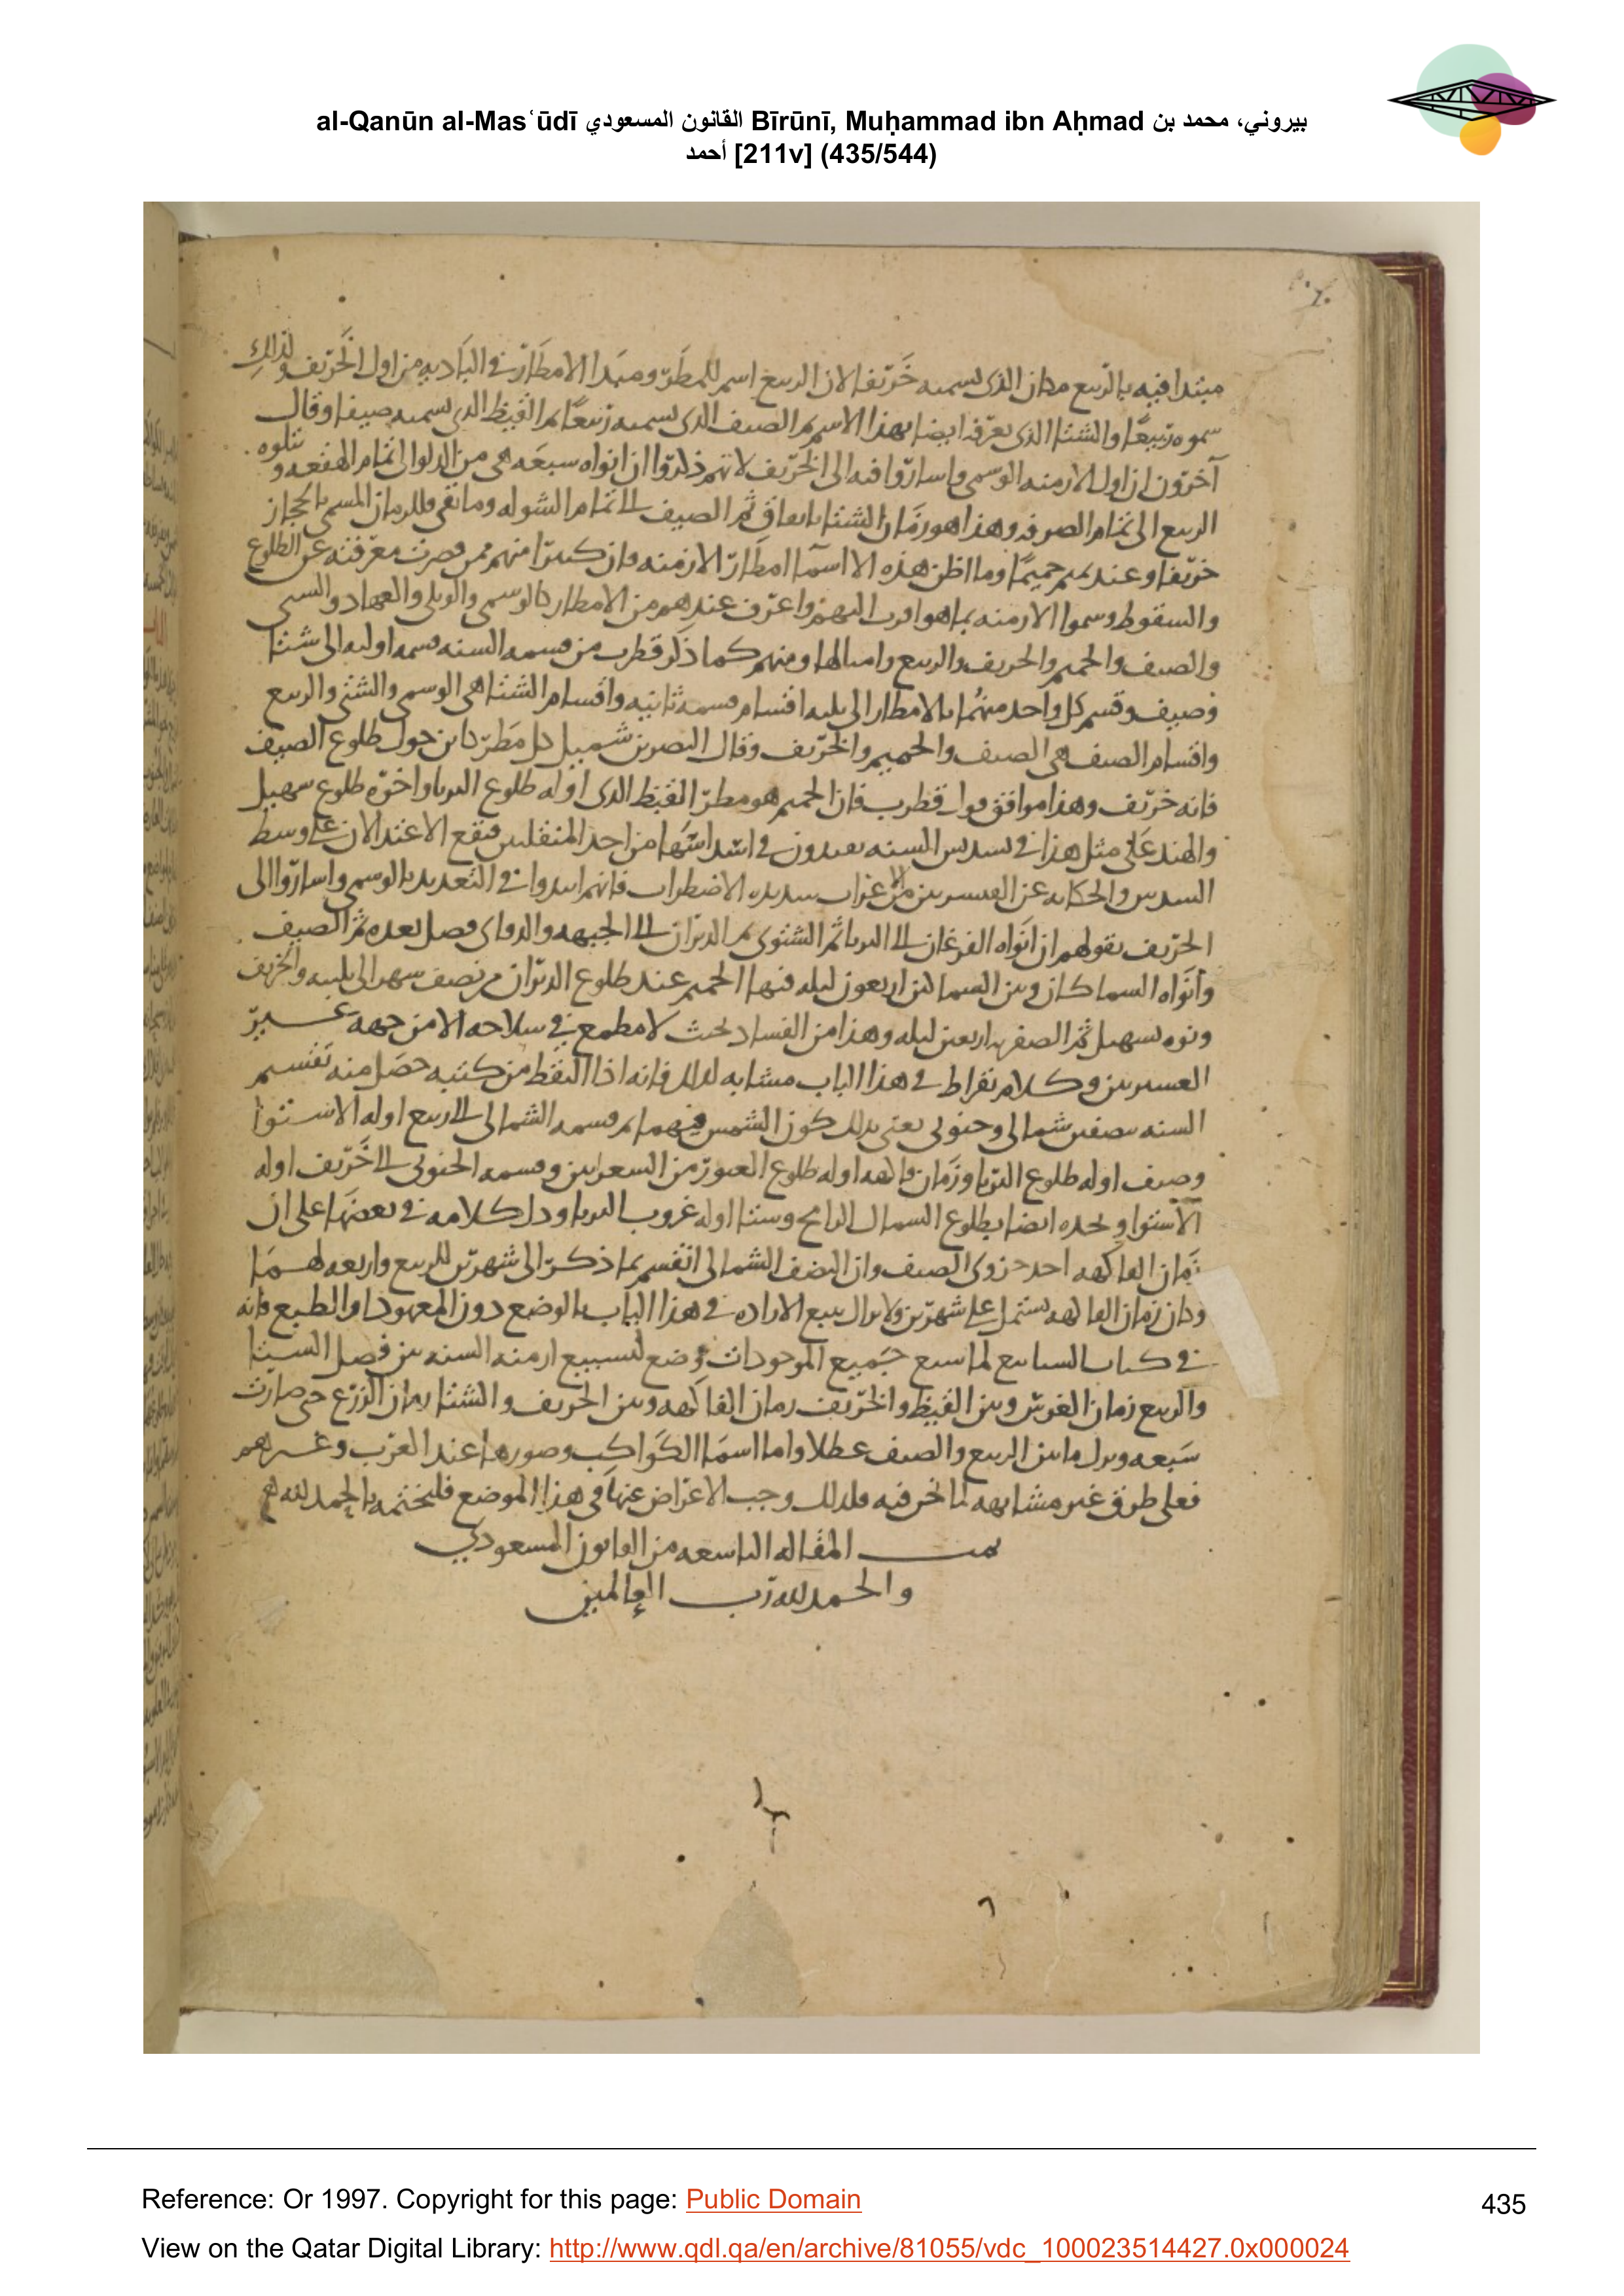 al-Qanūn al-Masʿūdī القانون المسعودي Bīrūnī, Muḥammad ibn Aḥmad بيروني، محمد بن
أحمد [211v] (435/544)
مبتدا فيه بالربيع مكان الذى نسميه خريفا لان الربيع اسم للمطر ومبدا الامطار فى البادية من اول الخريف ولذلك
سموه ربيعا والشتا الذى نعرفه ايضا بهذا الاسم ثم الصيف الذى نسميه ربيعا ثم القيظ الذى نسميه صيفا وقال
آخرون ان اول الازمنه الوسمى واشاروا فيه الى الخريف لانهم ذكروا ان انواه سبعه هى من الدلو الى تمام الهقعه و يتلوه
الربيع الى تمام الصرفه وهذا هو زمان الشتا باتفاق ثم الصيف الى تمام الشوله وما بقى فللزمان المسمى بالحجاز
خريفا وعند تميم حميما وما اظن هذه الا اسما امطار الازمنه فان كثيرا منهم ممن قصرت معرفته عن الطلوع
والسقوط وسموا الازمنه بما هو اقرب اليهم واعرف عندهم من الامطار كالوسمى والولى والعهاد والشتى
والصيف والحميم والخريف والربيع وامثالها ومنهم كما ذكر قطرب من قسمه السنه قسمه اوليه الى شتا
وصيف وقسم كل واحد منهما بالامطار الى ثلثه اقسام قسمه ثانيه واقسام الشتا هى الوسمى والشتى والربيع
واقسام الصيف هى الصيف والحميم والخريف وقال النضر بن شميل كل مطر كاين حول طلوع الصيف
فانه خريف وهذا موافق قول قطرب فان الحميم هو مطر القيظ الذى اوله طلوع الثريا واخره طلوع سهيل
والهند على مثل هذا فى تسديس السنه يعيدون فى ابتدائها من احد المنقلبين فيقع الاعتدالان على وسط
السدس والحكايه عن المفسرين من الاعراب شديده الاضطراب فانهم ابتدوا فى التعديد بالوسمى واشاروا الى
الخريف بقولهم ان انواه الفرغان الى الثريا ثم الشتوى من الدبران الى الجبهه والدفاى فصل بعده ثم الصيف
وانواه السماكان وبين السماكين اربعون ليله فيها الحميم عند طلوع الدبران من نصف شهر الى ثلثيه والخريف
ونوه سهيل ثم الصفريه اربعين ليله وهذا من الفساد بحيث لا مطمع فى صلاحه الا من جهه غير
المفسرين وكلام بقراط فى هذا الباب مشابه لذلك فانه اذا التقط من كتبه حصل منه تقسيم
السنه بنصفين شمالى وجنوبى يعنى بذلك كون الشمس فيهما ثم قسمه الشمالى الى ربيع اوله الاستوا
وصيف اوله طلوع الثريا وزمان فاكهه اوله طلوع العبور من الشعريين وقسمه الجنوبى الى خريف اوله
الاستوا ويحده ايضا بطلوع السماك الرامح وشتا اوله غروب الثريا ودل كلامه فى بعضها على ان
زمان الفاكهه احد جزوى الصيف وان النصف الشمالى انقسم بما ذكر الى شهرين للربيع واربعه لهما
وكان زمان الفاكهه يشتمل على شهرين ولا يزال يتبع الاراده فى هذا الباب بالوضع دون المعهود او الطبع فانه
فى كتاب السابيع لما سبع جميع الموجودات وضع لتسبيع ازمنه السنه بين فصل الشتا
والربيع زمان الغرس وبين القيظ والخريف زمان الفاكهه وبين الخريف والشتا زمان الزرع حتى صارت
سبعه وترك ما بين الربيع والصيف عطلا واما اسما الكواكب وصورها عند العرب وغيرهم
فعلى طرق غير مشابهه لما نحن فيه فلذلك وجب الاعراض عنها فى هذا الموضع فليختمه بالحمد لله
تمت المقاله التاسعه من القانون المسعودي
والحمد لله رب العالمين
Reference: Or 1997. Copyright for this page: Public Domain
435
View on the Qatar Digital Library: http://www.qdl.qa/en/archive/81055/vdc_100023514427.0x000024